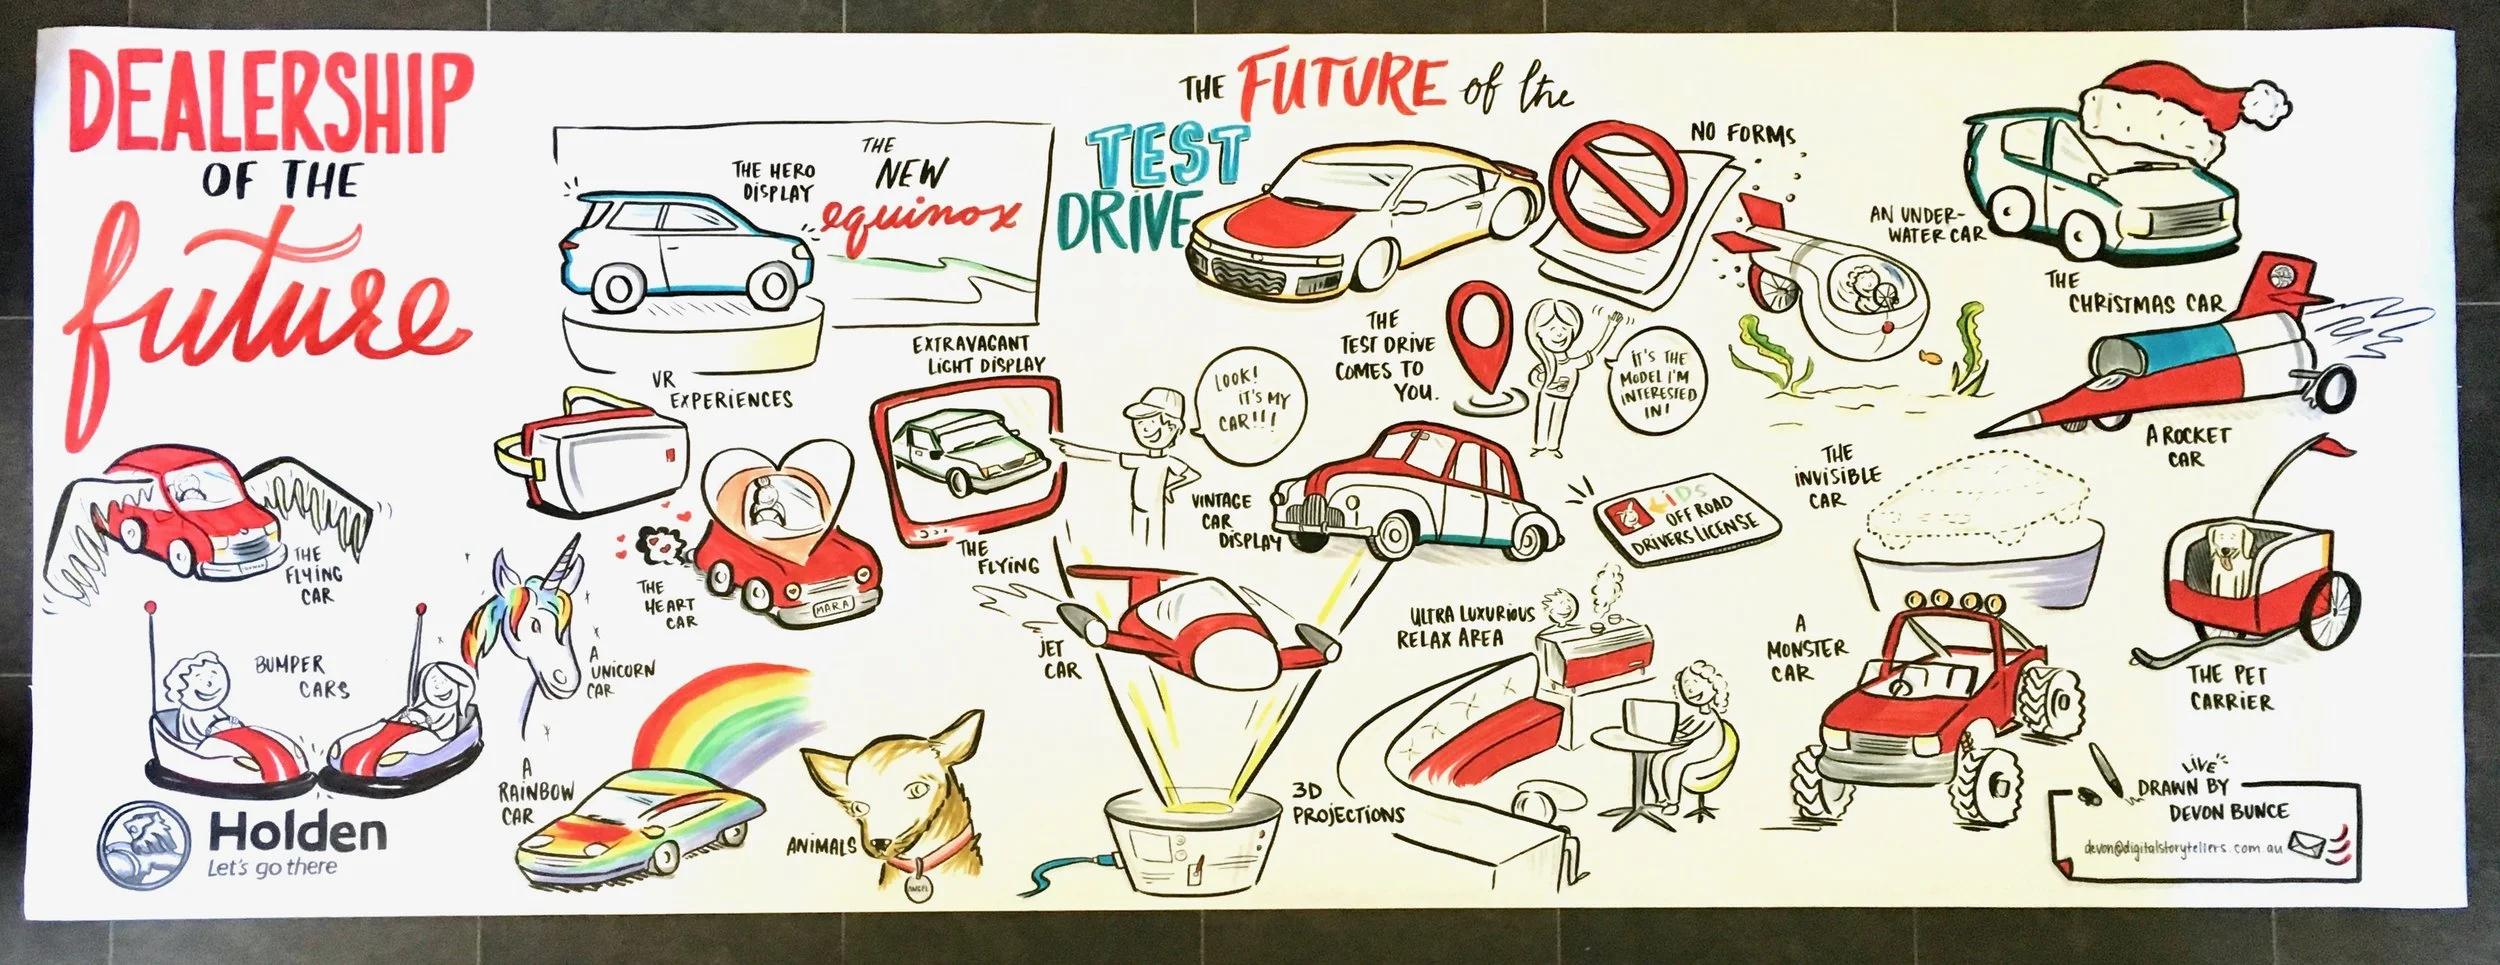 DEALERSHIP
OF THE
future
THE HERO
DISPLAY
THE
NEW
equinox
EXTRAVAGANT
LIGHT DISPLAY
VR
EXPERIENCES
THE
FLYING
CAR
THE
HEART
CAR
MARA
BUMPER
CARS
A
UNICORN
CAR
A
RAINBOW
CAR
ANIMALS
ANGEL
Holden
Let's go there
THE FUTURE of the
TEST
DRIVE
NO FORMS
THE
TEST DRIVE
COMES TO
YOU.
IT'S THE
MODEL I'M
INTERESTED
IN!
LOOK!
IT'S MY
CAR!!!
VINTAGE
CAR
DISPLAY
KIDS
OFF ROAD
DRIVERS LICENSE
THE
FLYING
JET
CAR
3D
PROJECTIONS
ULTRA LUXURIOUS
RELAX AREA
AN UNDER-
WATER CAR
THE
CHRISTMAS CAR
A ROCKET
CAR
THE
INVISIBLE
CAR
A
MONSTER
CAR
THE PET
CARRIER
LIVE
DRAWN BY
DEVON BUNCE
devon@digitalstorytellers.com.au